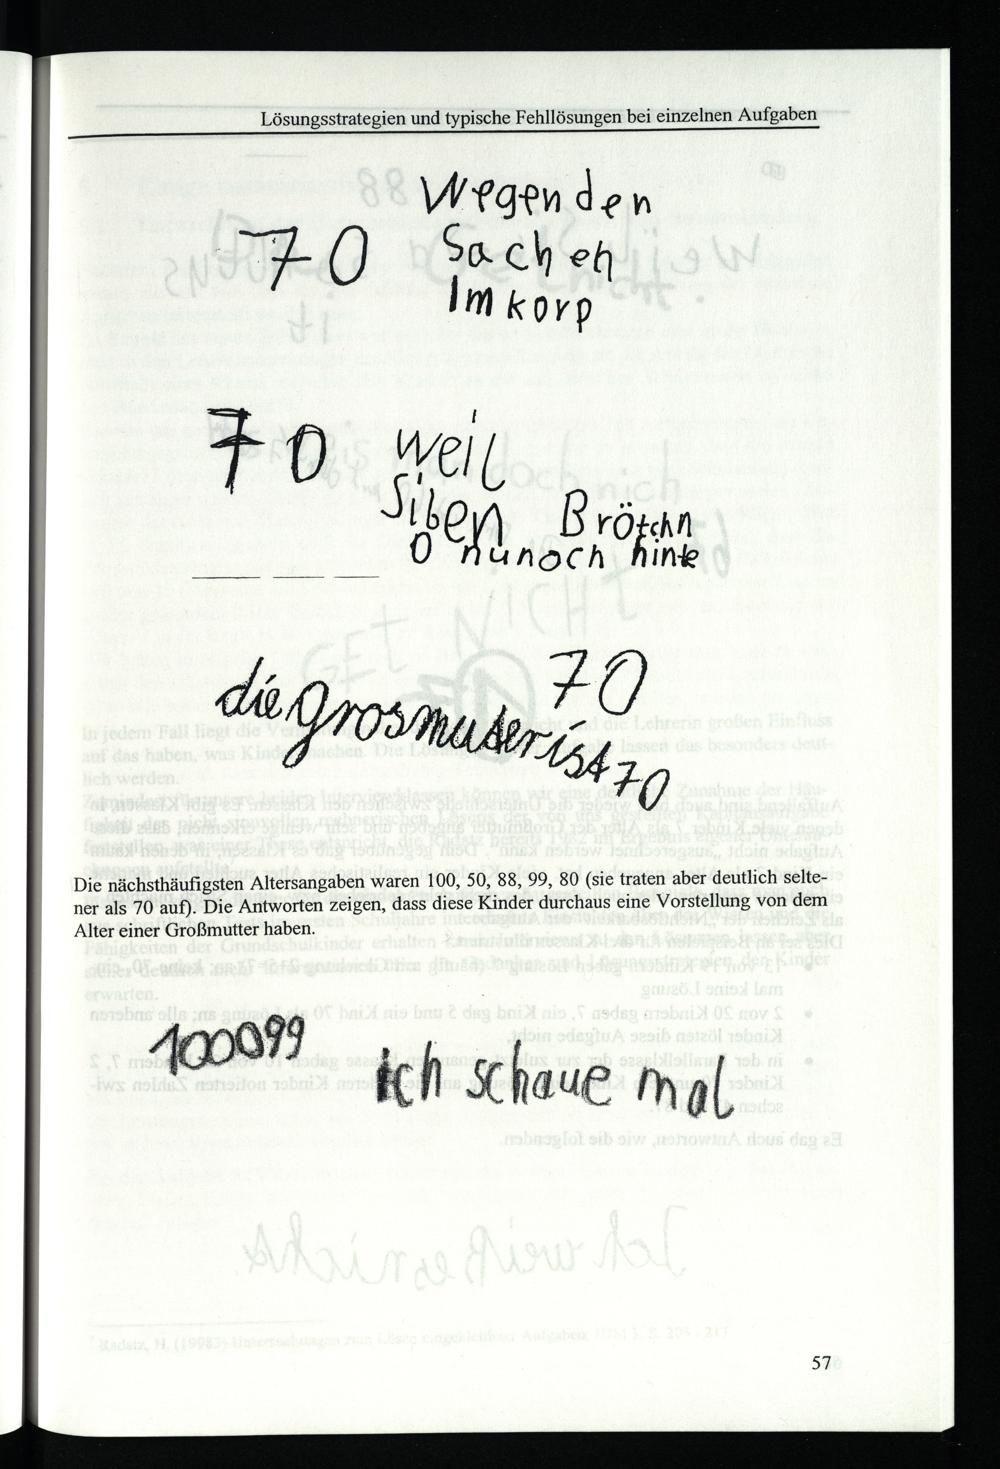 Lösungsstrategien und typische Fehllösungen bei einzelnen Aufgaben
Wegen den
70 Sachen
Im korp
70 weil
Siben Brötchn
0 nunoch hinte
70
die Grosmuter ist 70
Die nächsthäufigsten Altersangaben waren 100, 50, 88, 99, 80 (sie traten aber deutlich selte-
ner als 70 auf). Die Antworten zeigen, dass diese Kinder durchaus eine Vorstellung von dem
Alter einer Großmutter haben.
100099
ich schaue mal
57